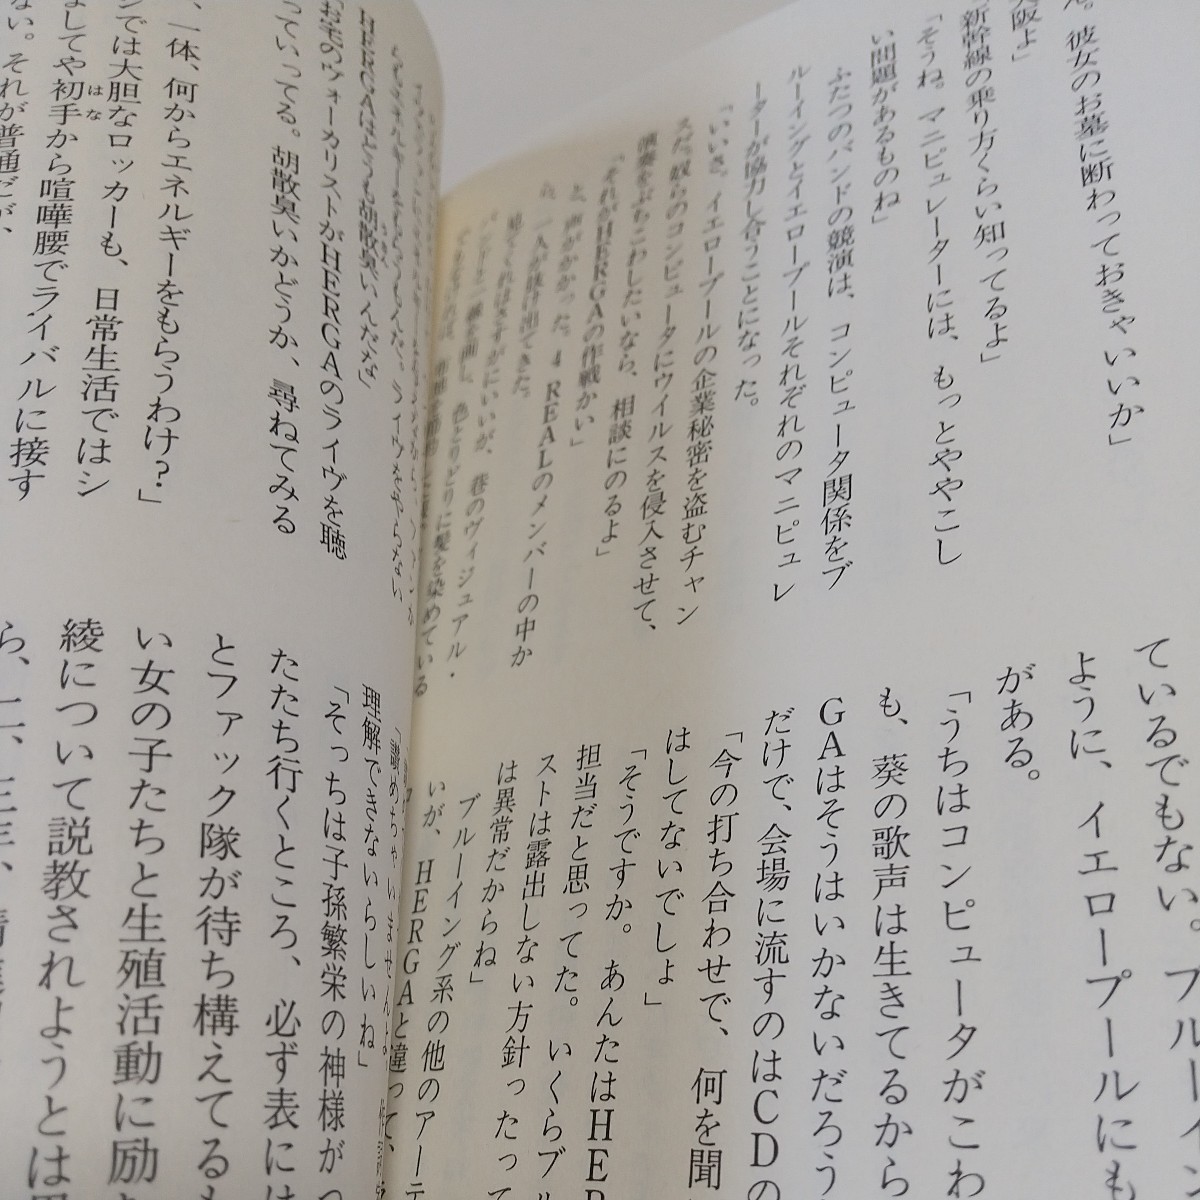 ん。彼女のお墓に断わっておきゃいいか」
大阪よ」
「新幹線の乗り方くらい知ってるよ」
「そうね。マニピュレーターには、もっとややこし
い問題があるものね」
ふたつのバンドの競演は、コンピュータ関係をブ
ルーイングとイエロープールそれぞれのマニピュレ
ーターが協力し合うことになった。
「いいさ。イエロープールの企業秘密を盗むチャン
スだ。奴らのコンピュータにウイルスを侵入させて、
演奏をぶちこわしたいなら、相談にのるよ」
「それがHERGAの作戦かい」
と、声がかかった。4 REALのメンバーの中か
ら、一人が抜け出てきた。
色とりどりに髪を染めている
ているでもない。ブルーイン
ように、イエロープールにも
がある。
「うちはコンピュータがこわ
も、葵の歌声は生きてるから
GAはそうはいかないだろう
だけで、会場に流すのはCDの
「今の打ち合わせで、何を聞
はしてないでしょ」
「そうですか。あんたはHER
担当だと思ってた。いくらブル
ストは露出しない方針ったって
は異常だからね」
ブルーイング系の他のアーテ
いが、HERGAと違って、
HERGAはどうも胡散臭いんだな」
「お宅のヴォーカリストがHERGAのライヴを聴
っていってる。胡散臭いかどうか、尋ねてみる
、一体、何からエネルギーをもらうわけ?」
ジでは大胆なロッカーも、日常生活ではシ
ましてや初手から喧嘩腰でライバルに接す
はな
ない。それが普通だが、
理解できないらしいね」
「そっちは子孫繁栄の神様がつ
たたち行くところ、必ず表には
とファック隊が待ち構えてるも
い女の子たちと生殖活動に励
綾について説教されようとは思